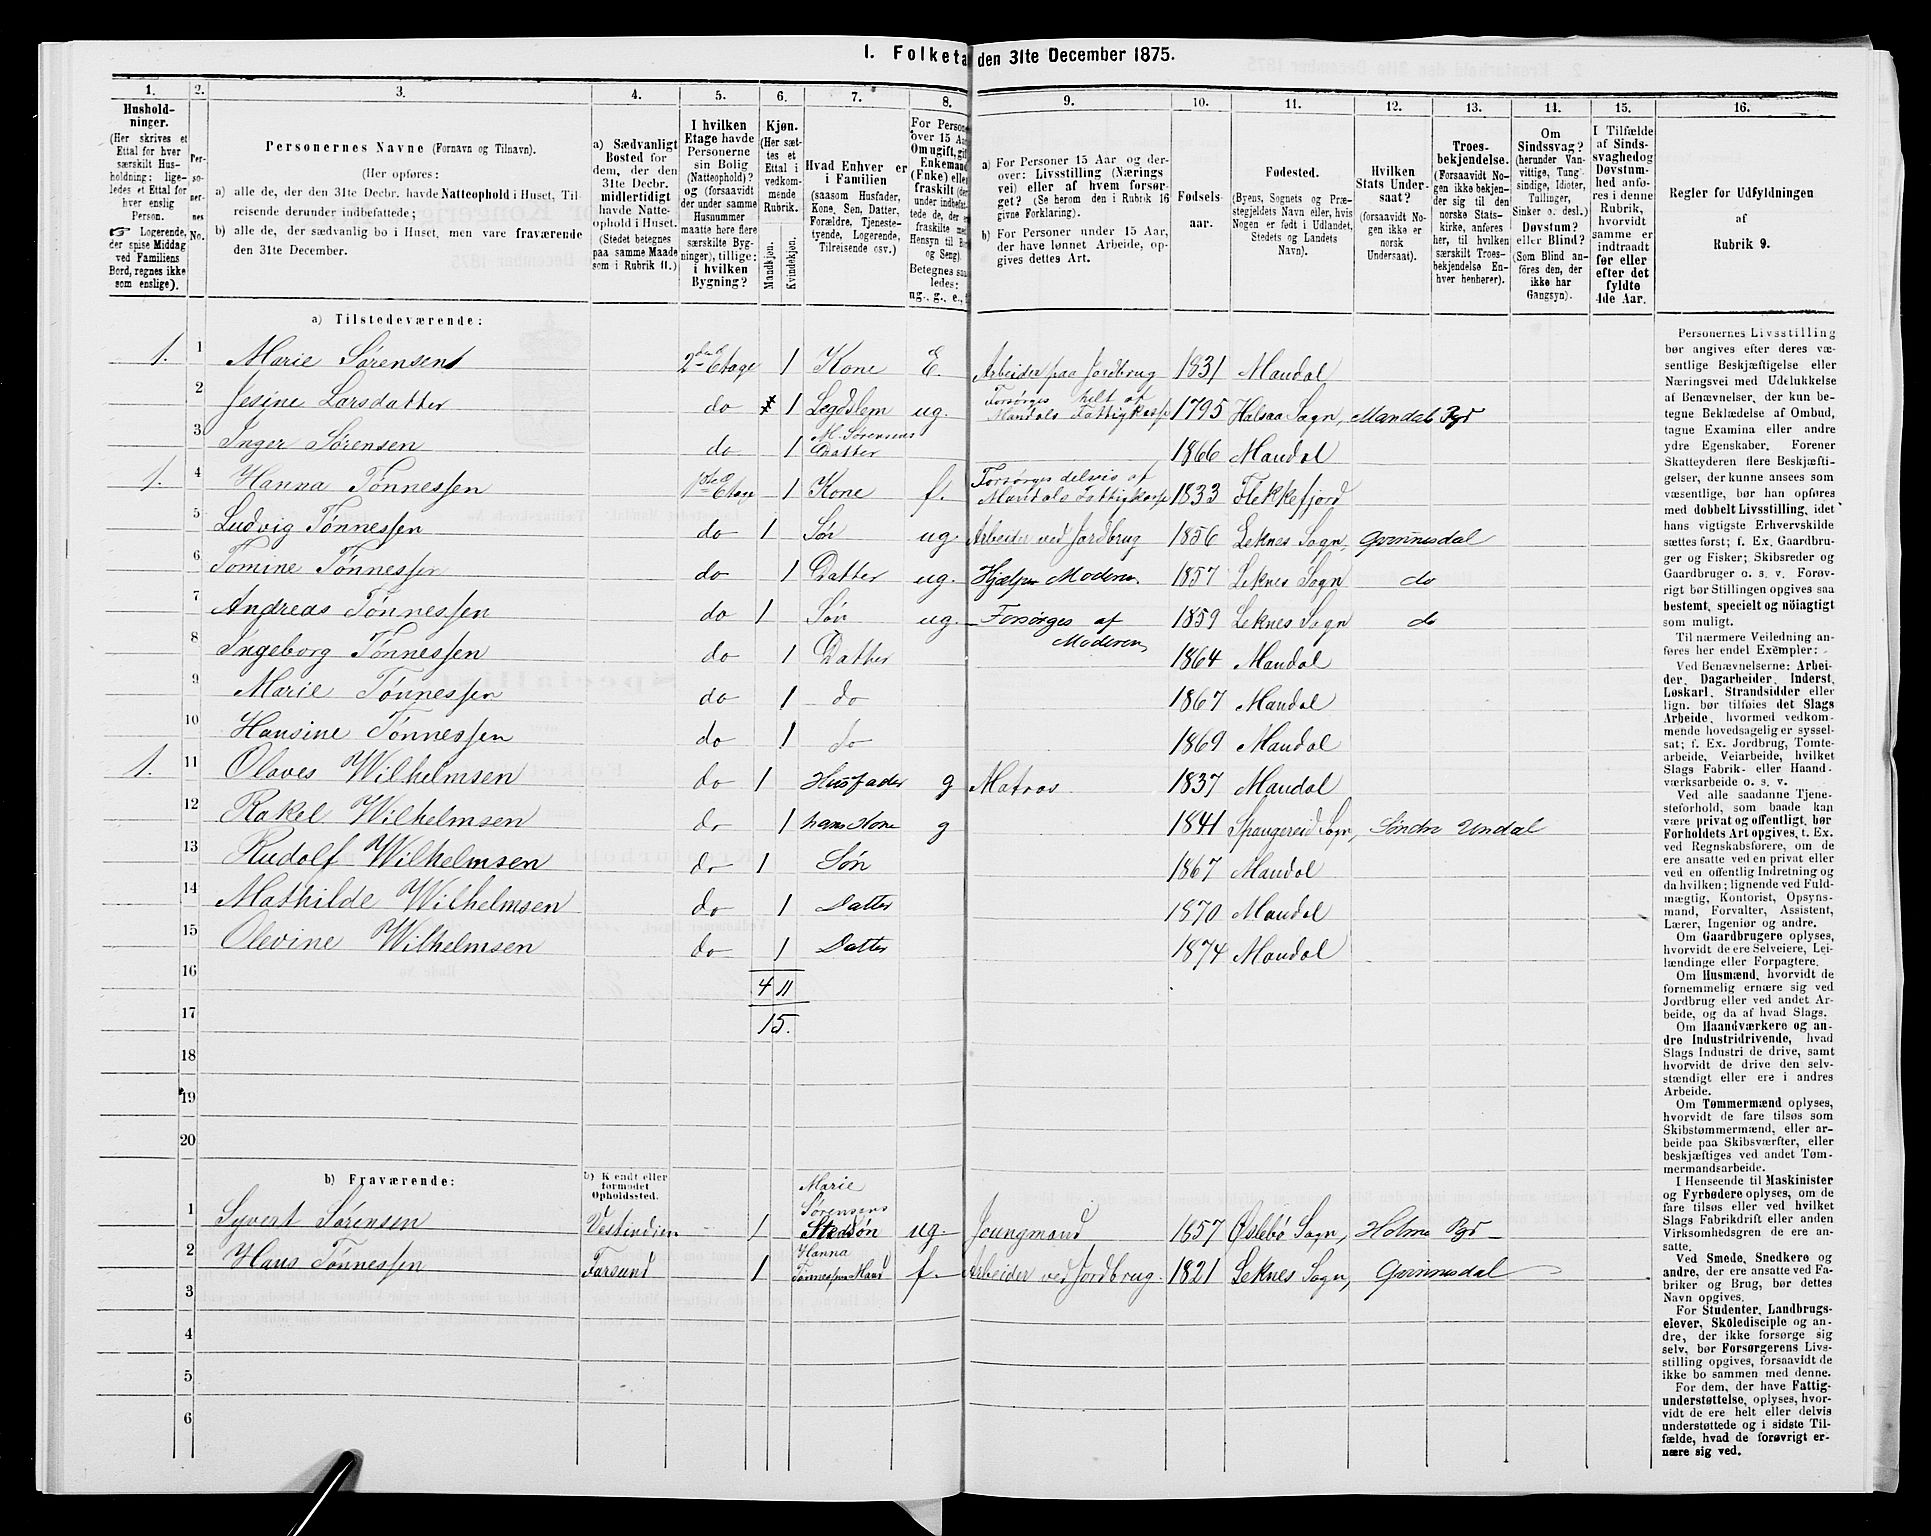 1. Folketæ den 31te December 1875.
1. 2. 3. 4. 5. 6. 7. 8. 9. 10. 11. 12. 13. 14. 15. 16.
Hushold-
ninger.
(Her skrives et
Ettal for hver
særskilt Hus-
holdning; lige-
ledes et Ettal for
hver enslig
Person.
☞ Logerende,
der spise Middag
ved Familiens
Bord, regnes ikke
som enslige).
Per-
so-
ner-
nes
No.
Personernes Navne (Fornavn og Tilnavn).
(Her opføres:
a) alle de, der den 31te Decbr. havde Natteophold i Huset, Til-
reisende derunder indbefattede;
b) alle de, der sædvanlig bo i Huset, men vare fraværende
den 31te December.
a) Sædvanligt
Bosted for
dem, der den
31te Decbr.
midlertidigt
havde Natte-
ophold i Huset.
(Stedet betegnes
paa samme Maade
som i Rubrik 11.)
I hvilken
Etage havde
Personerne
sin Bolig
(Natteophold)?
og (forsaavidt
der under samme
Husnummer
maatte høre flere
særskilte Byg-
ninger), tillige:
i hvilken
Bygning?
Kjøn.
(Her sæt-
tes et
Ettal i
vedkom-
mende
Rubrik.
Mandkjøn.
Kvindekjøn.
Hvad Enhver er
i Familien
(saasom Husfader,
Kone, Søn, Datter,
Forældre, Tjeneste-
tyende, Logerende,
Tilreisende osv.)
For Persone
over 15 Aar
Om ugift, gift
Enkemand
(Enke) eller
fraskilt (der
under indbefat-
tede de, der er
fraskilte med
Hensyn til Bo
og Seng).
Betegnes saa-
ledes:
ug., g., e.,
a) For Personer 15 Aar og der-
over: Livsstilling (Nærings
vei) eller af hvem forsør-
get? (Se herom den i Rubrik 16
givne Forklaring).
b) For Personer under 15 Aar,
der have lønnet Arbeide, op-
gives dettes Art.
Fødsels-
aar.
Fødested.
(Byens, Sognets og Præ-
stegjeldets Navn eller, hvis
Nogen er født i Udlandet,
Stedets og Landets
Navn).
Hvilken
Stats Under-
saat?
(forsaavidt No-
gen ikke er
norsk
Undersaat).
Troes-
bekjendelse.
(Forsaavidt No-
gen ikke bekjen-
der sig til den
norske Stats-
kirke, anføres
her, til hvilken
særskilt Troes-
bekjendelse En-
hver henhører).
Om
Sindssvag?
(herunder Van-
vittige, Tung-
sindige, Idioter,
Tullinger,
Sinker o. desl.)
Døvstum?
eller Blind?
(Som Blind an-
føres den, der
ikke har
Gangsyn).
I Tilfælde
af Sinds-
svaghed og
Døvstum-
hed anfø-
res i denne
Rubrik,
hvorvidt
samme er
indtraadt
før eller
efter det
fyldte
4de Aar.
Regler for Udfyldningen
af
Rubrik 9.
a) Tilstedeværende:
1. 1 Marie Sørensen 2den Etage 1 Kone E. Arbeider paa Jordbrug 1831 Mandal
2 Jesine Larsdatter do 1 Legdslem ug. Forsørges helt af Mandals Fattigkasse 1795 Halsaa Sogn, Mandals Pgd
3 Inger Sørensen do 1 M. Sørensens Datter 1866 Mandal
1. 4 Hanna Tønnessen 1ste Etage 1 Kone f. Forsørges delvis af Mandals Fattigkasse 1833 Flekkefjord
5 Ludvig Tønnessen do 1 Søn ug. Arbeider ved Jordbrug 1856 Leknes Sogn, Gvinnesdal
6 Tomine Tønnessen do 1 Datter ug. Hjælper Moderen 1857 Leknes Sogn do
7 Andreas Tønnessen do 1 Søn ug. Forsørges af Moderen 1859 Leknes Sogn do
8 Ingeborg Tønnessen do 1 Datter 1864 Mandal
9 Marie Tønnessen do 1 do 1867 Mandal
10 Hansine Tønnessen do 1 do 1869 Mandal
1. 11 Olaves Wilhelmsen do 1 Husfader g Matros 1837 Mandal
12 Rakel Wilhelmsen do 1 hans Kone g 1841 Spangereid Sogn, Søndre Undal
13 Rudolf Wilhelmsen do 1 Søn 1867 Mandal
14 Mathilde Wilhelmsen do 1 Datter 1870 Mandal
15 Olevine Wilhelmsen do 1 Datter 1874 Mandal
16 4 11
17 15.
18
19
20
b) Fraværende:
b) Kjendt eller
formodet
Opholdssted.
1 Syvert Sørensen Vestindien 1 Marie Sørensens Stedsøn ug. Joungmand 1857 Øslebø Sogn, Holme Pgd
2 Hans Tønnessen Farsund 1 Hanna Tønnessens Mand f. Arbeider ved Jordbrug. 1821 Leknes Sogn, Gvinnesdal
3
4
5
6
Personernes Livsstilling
bør angives efter deres væ-
sentlige Beskjæftigelse eller
Næringsvei med Udelukkelse
af Benævnelser, der kun be-
tegne Beklædelse af Ombud,
tagne Examina eller andre
ydre Egenskaber. Forener
Skatteyderen flere Beskjæfti-
gelser, der kunne ansees som
væsentlige, bør han opføres
med dobbelt Livsstilling, idet
hans vigtigste Erhvervskilde
sættes først; f. Ex. Gaardbru-
ger og Fisker; Skibsreder og
Gaardbruger o. s. v. Forøv-
rigt bør Stillingen opgives saa
bestemt, specielt og nöiagtigt
som muligt.
Til nærmere Veiledning an-
føres her endel Exempler:
Ved Benævnelserne: Arbei-
der, Dagarbeider, Inderst,
Løskarl, Strandsidder eller
lign. bør tilføies det Slags
Arbeide, hvormed vedkom-
mende hovedsagelig er syssel-
sat; f. Ex. Jordbrug, Tomte-
arbeide, Veiarbeide, hvilket
Slags Fabrik- eller Haand-
værksarbeide o. s. v.
Ved alle saadanne Tjene-
steforhold, som baade kan
være privat og offentligt, bør
Forholdets Art opgives, t. Ex.
ved Regnskabsførere, om de
ere ansatte ved en privat eller
ved en offentlig Indretning og
da hvilken; lignende ved Fuld-
mægtig, Kontorist, Opsyns-
mand, Forvalter, Assistent,
Lærer, Ingeniør og andre.
Om Gaardbrugere oplyses,
hvorvidt de ere Selveiere, Lei-
lændinge eller Forpagtere.
Om Husmænd, hvorvidt de
fornemmelig ernære sig ved
Jordbrug eller ved andet Ar-
beide, og da af hvad Slags.
Om Haandværkere og an-
dre Industridrivende, hvad
Slags Industri de drive, samt
hvorvidt de drive den selv-
stændigt eller ere i andres
Arbeide.
Om Tømmermænd oplyses,
hvorvidt de fare tilsøs som
Skibstømmermænd, eller ar-
beide paa Skibsværfter, eller
beskjæftiges ved andet Tøm-
mermandsarbeide.
I Henseende til Maskinister
og Fyrbødere oplyses, om de
fare tilsøs eller ved hvilket
Slags Fabrikdrift eller anden
Virksomhedsgren de ere an-
satte.
Ved Smede, Snedkere og
andre, der ere ansatte ved Fa-
briker og Brug, bør dettes
Navn opgives.
For Studenter, Landbrugs-
elever, Skoledisciple og an-
dre, der ikke forsørge sig
selv, bør Forsørgerens Livs-
stilling opgives, forsaavidt de
ikke bo sammen med denne.
For dem, der have Fattig-
understøttelse, oplyses, hvor-
vidt de ere helt eller delvis
understøttede og i sidste Til-
fælde, hvad de forøvrigt er-
nære sig ved.